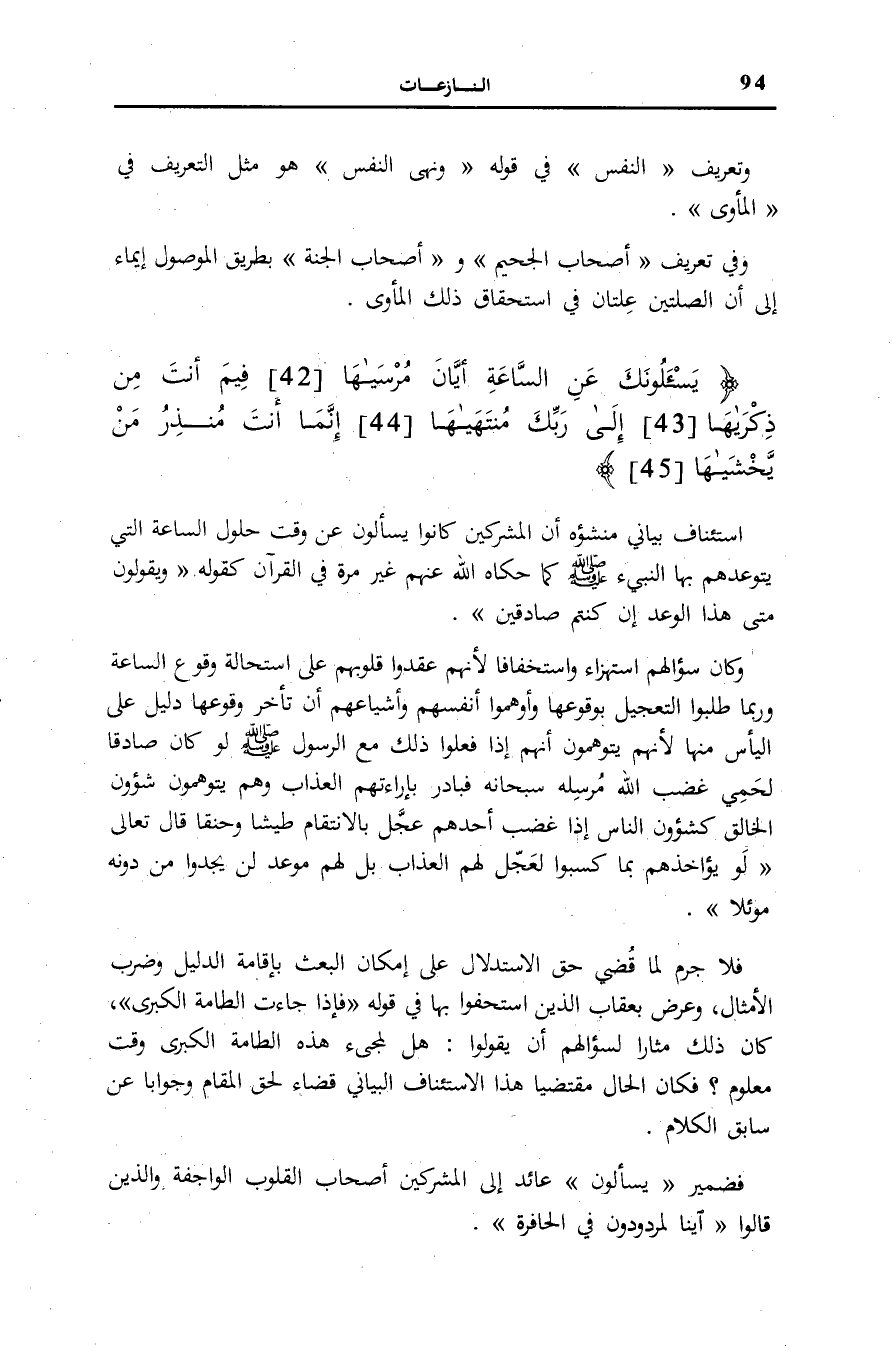 94
النـــازعـــات
وتعريف « النفس » في قوله « ونهى النفس » هو مثل التعريف في
« المأوى » .
وفي تعريف « أصحاب الجحيم » و « أصحاب الجنة » بطريق الموصول إيماء
إلى أن الصلتين عِلتان في استحقاق ذلك المأوى .
﴿ يَسْـَٔلُونَكَ عَنِ السَّاعَةِ أَيَّانَ مُرْسَيـٰهَا [42] فِيمَ أَنتَ مِن
ذِكْرَيٰهَـا [43] إِلَـىٰ رَبِّكَ مُنتَهَيـٰهَـا [44] إِنَّمَـا أَنتَ مُنـــذِرُ مَنْ
يَّخْشَيـٰهَا [45] ﴾
استئناف بياني منشؤه أن المشركين كانوا يسألون عن وقت حلول الساعة التي
يتوعدهم بها النبيء ﷺ كما حكاه الله عنهم غير مرة في القرآن كقوله « ويقولون
متى هذا الوعد إن كنتم صادقين » .
وكان سؤالهم استهزاء واستخفافا لأنهم عقدوا قلوبهم على استحالة وقوع الساعة
وربما طلبوا التعجيل بوقوعها وأوهموا أنفسهم وأشياعهم أن تأخر وقوعها دليل على
اليأس منها لأنهم يتوهمون أنهم إذا فعلوا ذلك مع الرسول ﷺ لو كان صادقا
لحَمِي غضب الله مُرسِله سبحانه فبادر بإراءتهم العذاب وهم يتوهمون شؤون
الخالق كشؤون الناس إذا غضب أحدهم عجَّل بالانتقام طيشا وحنقا قال تعالى
« لَو يؤاخذهم بما كسبوا لعَجّل لهم العذاب بل لهم موعد لن يجدوا من دونه
موئلا » .
فلا جرم لما قُضي حق الاستدلال على إمكان البعث بإقامة الدليل وضرب
الأمثال، وعرض بعقاب الذين استحفوا بها في قوله «فإذا جاءت الطامة الكبرى»،
كان ذلك مثارا لسؤالهم أن يقولوا : هل لمجيء هذه الطامة الكبرى وقت
معلوم ؟ فكان الحال مقتضيا هذا الاستئناف البياني قضاء لحق المقام وجوابا عن
سابق الكلام .
فضمير « يسألون » عائد إلى المشركين أصحاب القلوب الواجفة والذين
قالوا « آينا لمردودون في الحافرة » .